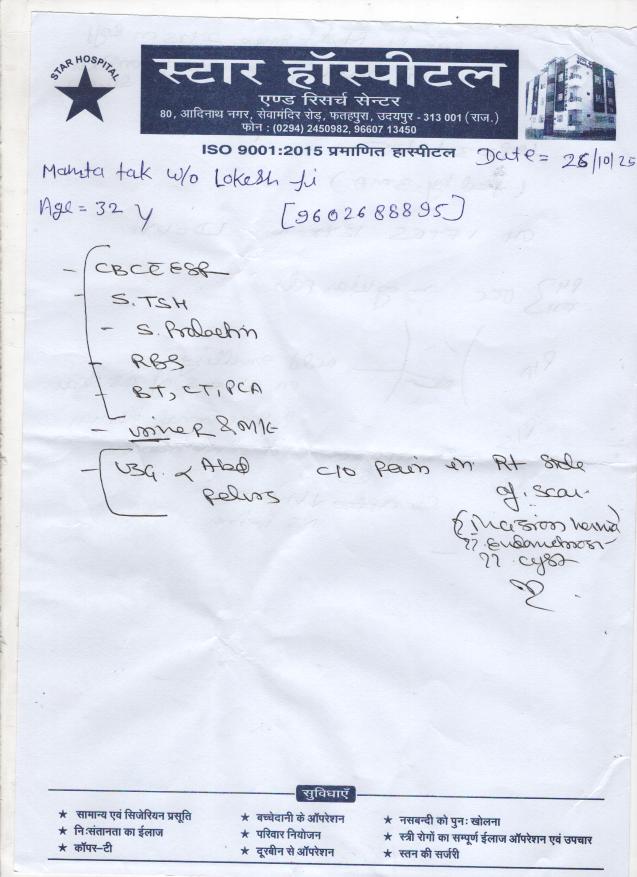 STAR HOSPITAL
स्टार हॉस्पीटल
एण्ड रिसर्च सेन्टर
80, आदिनाथ नगर, सेवामंदिर रोड़, फतहपुरा, उदयपुर - 313 001 (राज.)
फोन : (0294) 2450982, 96607 13450
ISO 9001:2015 प्रमाणित हास्पीटल
Date = 26/10/25
Mamta tak w/o Lokesh Ji
Age = 32 y [9602688895]
- CBC c̄ ESR
- S. TSH
- S. Prolactin
- RBS
- BT, CT, PCA
- urine R & M/E
- USG. < Abd c/o pain in Rt side
Pelvis of scar
{ Incision hernia
?? Endometriosi
?? cyst
सुविधाएँ
★ सामान्य एवं सिजेरियन प्रसूति ★ बच्चेदानी के ऑपरेशन ★ नसबन्दी को पुनः खोलना
★ निःसंतानता का ईलाज ★ परिवार नियोजन ★ स्त्री रोगों का सम्पूर्ण ईलाज ऑपरेशन एवं उपचार
★ कॉपर-टी ★ दूरबीन से ऑपरेशन ★ स्तन की सर्जरी